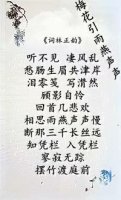 梅花引雨燕声声
《词林正韵》
听不见 凄风乱
愁肠生眉共津岸
泪零笺 写潸然
顾影自怜
回首几悲欢
相思雨燕声声慢
断那三千长丝远
知凭栏 入凭栏
寥寂无踪
摆竹渡庭前